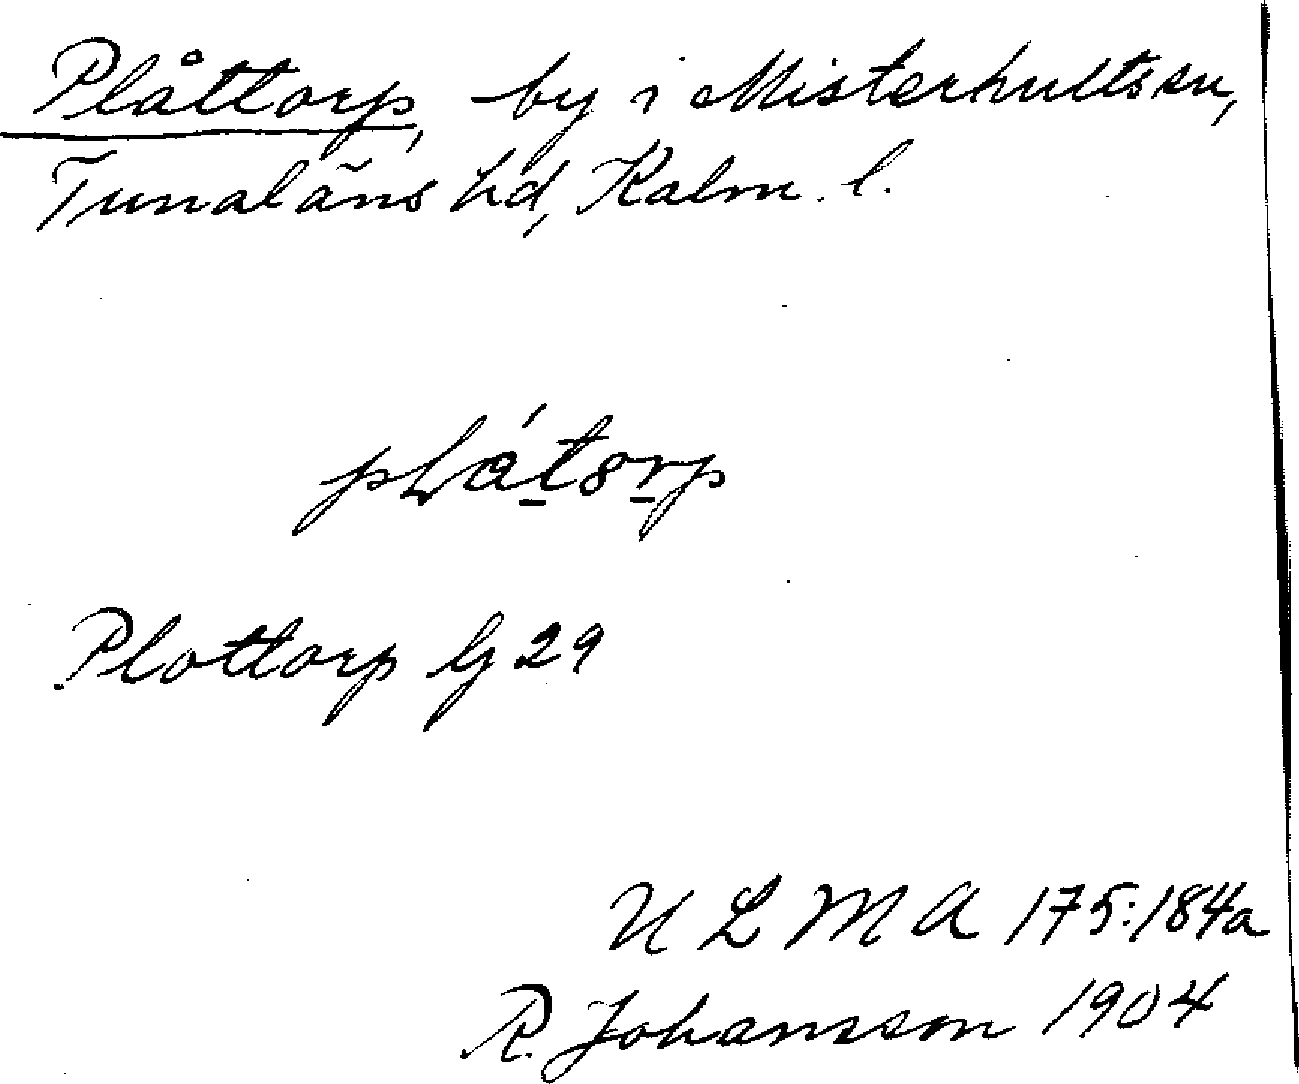 Plåttorp, by i Misterhults sn,
Tunaläns hd, Kalm. l.
Plottorp Gj 29
U L M A 175:184a
R. Johansson 1904